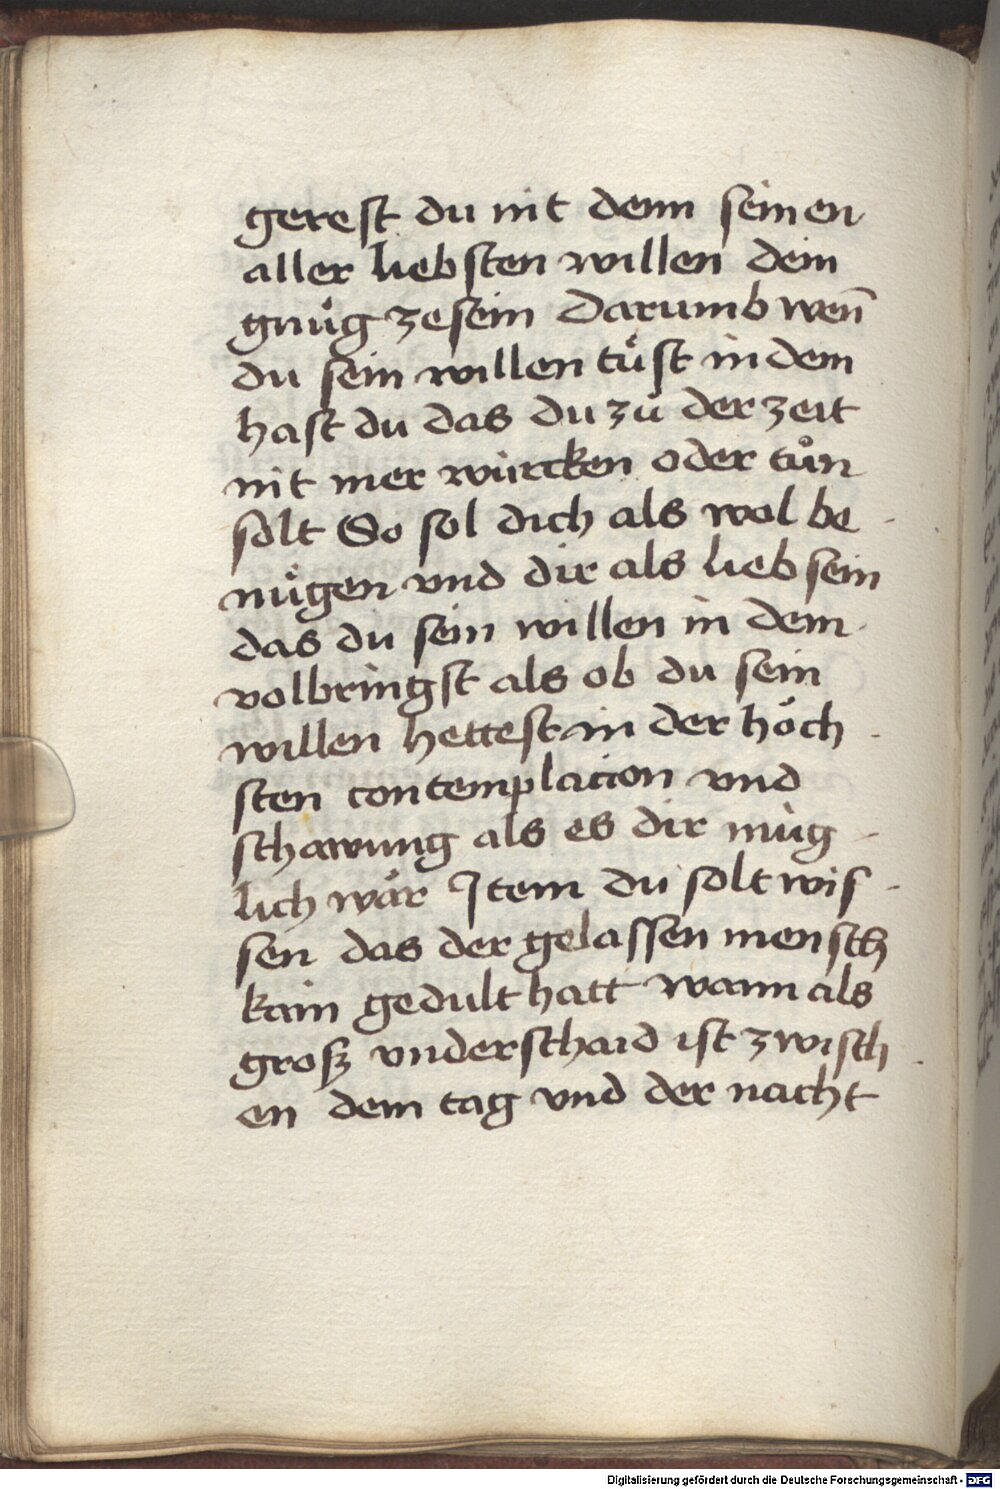 gerest du nit denn seinen
aller liebsten willen dein
gnuͤg zesein Darumb wen̄
du sein willen tuͤst in dem
hast du das du zů der zeit
nit mer würcken oder tůn
solt So sol dich als wol be
nuͤgen vnd dir als lieb sein
das du sein willen in dem
volbringst als ob du sein
willen hettest in der hoͤch
sten contemplacion vnd
schawung als es dir müg
lich waͤr Item du solt wis
sen das der gelassen mensch
kain gedult hatt wann als
groſz vnderschaid ist zwisch
en dem tag vnd der nacht
Digitalisierung gefördert durch die Deutsche Forschungsgemeinschaft - DFG